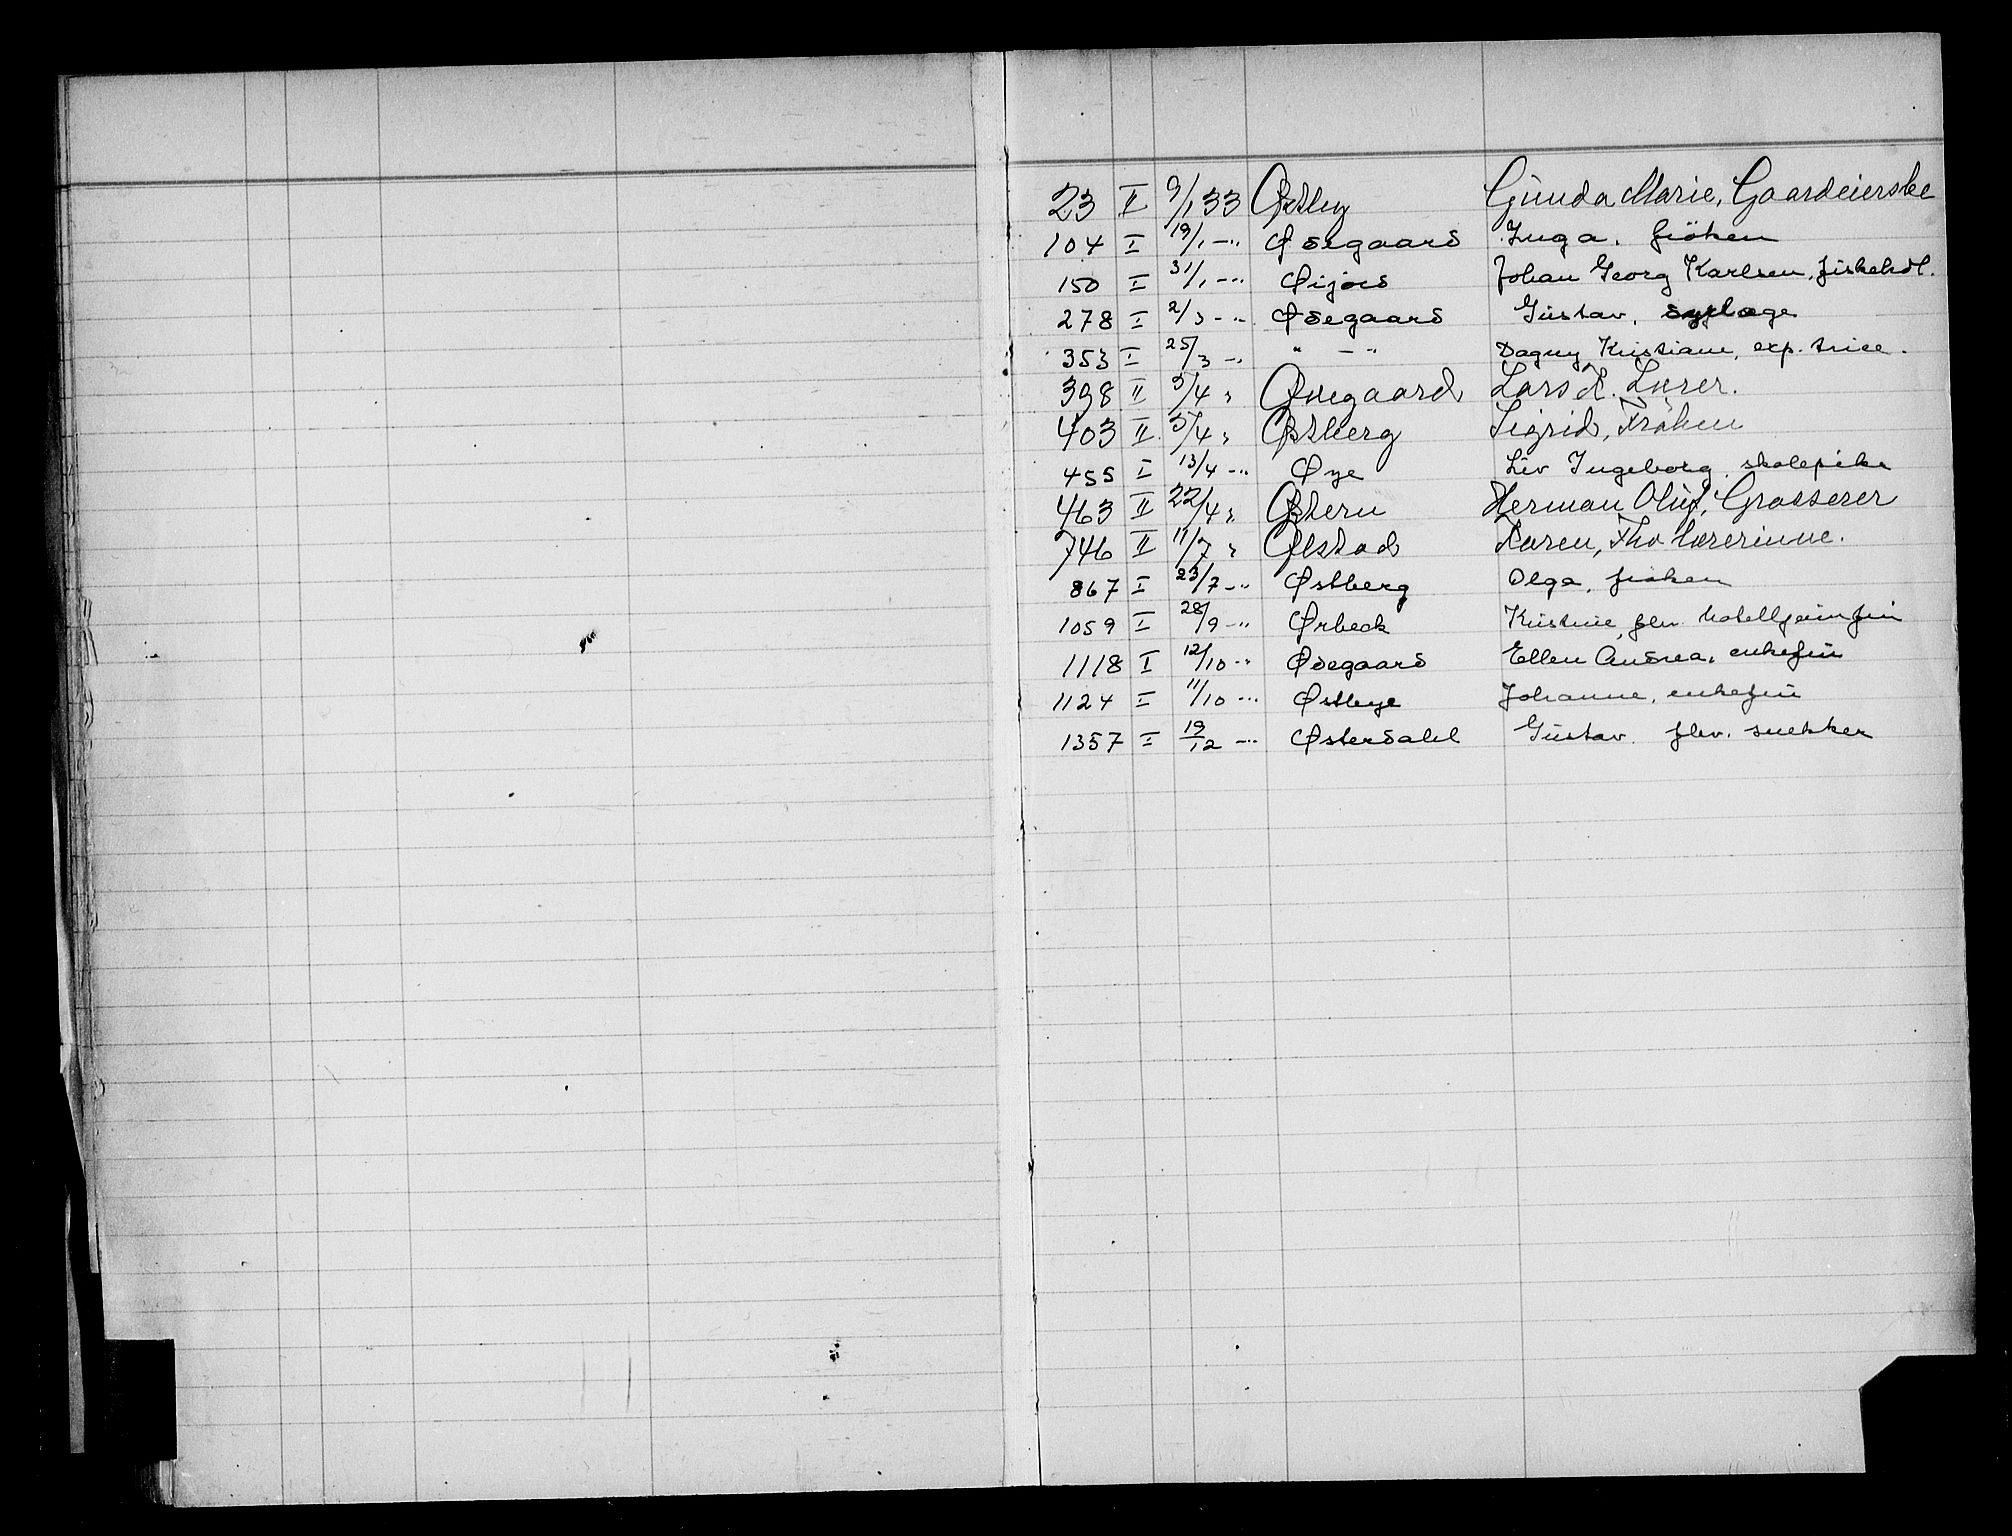 23 II 9/1 33 Østby Gunda Marie, Gaardeierske
104 I 19/1 -"- Ødegaard Inga, frøken
150 I 31/1 -"- Øijord Johan Georg Karlsen, fiskehdl.
278 I 2/3 -"- Ødegaard Gustav,
353 I 25/3 -"- " -"- Dagny Kristiane, exp. trice.
398 II 5/4 " Øvregaard Lars K. Lærer.
403 II 5/4 " Østberg Sigrid, Frøken
455 I 13/4 -"- Øye Liv Ingeborg, skolepike
463 II 22/4 " Østern Herman Oluf, Grosserer
746 II 11/7 " Ølstad Karen, Fhv Lærerinne.
867 I 23/7 -"- Østberg Olga, frøken
1059 I 28/9 -"- Ørbeck Kristine, fhv.
1118 I 12/10 -"- Ødegaard Ellen Andrea, enkefru
1124 I 11/10 -"- Østbye Johanne, enkefru
1357 I 19/12 -"- Østerdahl Gustav. fhv. snekker